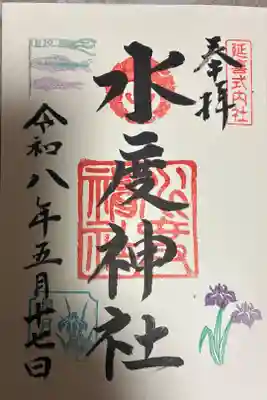 延喜式内社
奉拝
水度神社
令和八年五月廿七日